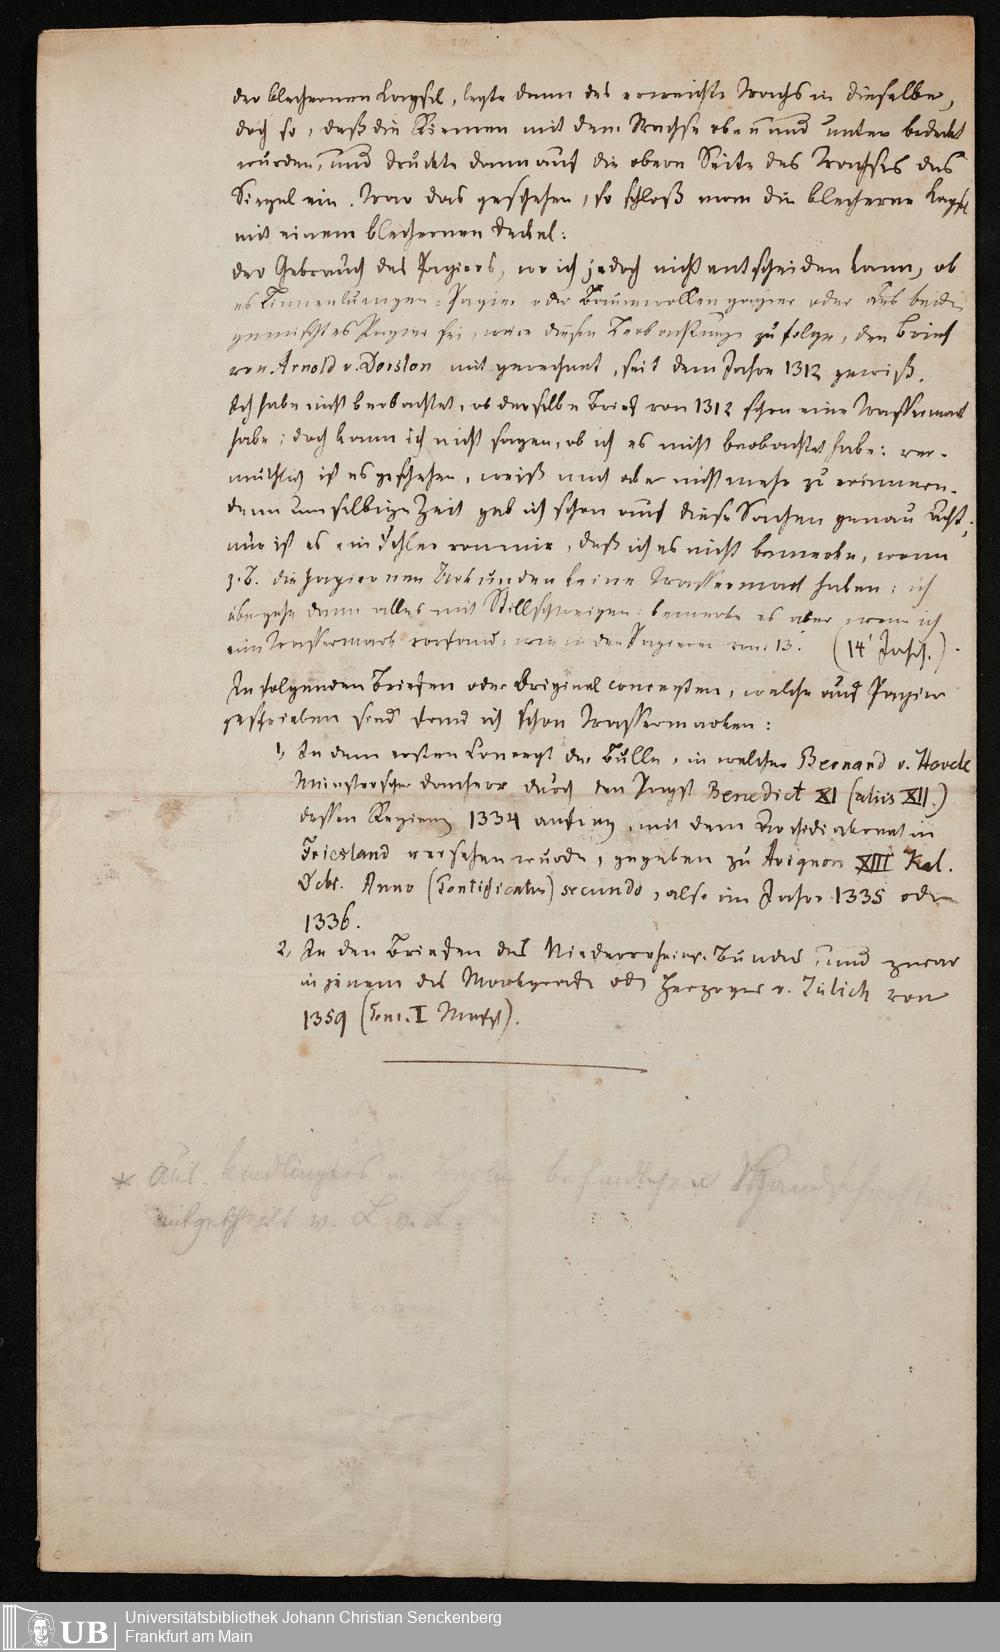 der blechernen Kapsel, legte dann das erweichte Wachs in dieselbe,
doch so, daß die Riemen mit dem Wachse oben und unter bedeckt
wurden, und druckte dann auf die obere Seite des Wachses das
Siegel ein. War das geschehen, so schloß man die blecherne Kapsel
mit einem blechernen Deckel:
der Gebrauch des Papiers, wo ich jedoch nicht entscheiden kann, ob
es Linnenlumpen-Papier oder Baumwollenpapier oder aus beiden
gemischtes Papier sei, wäre diesen Beobachtungen zufolge, den Brief
von Arnold v. Dorston mit gerechnet, seit dem Jahre 1312 gewiß.
Ich habe nicht beobachtet, ob derselbe Brief von 1312 schon eine Wassermark
habe; doch kann ich nicht sagen, ob ich es nicht beobachtet habe: ver-
muthlich ist es geschehen, weiß mich aber nicht mehr zu erinnern.
denn um selbige Zeit gab ich schon auf diese Sachen genau Acht;
nur ist es ein Fehler von mir, daß ich es nicht bemerke, wenn
z.B. die papiernen Urkunden keine Wassermark haben: ich
übergehe dann alles mit Stillschweigen: bemerke es aber wenn ich
eine Wassermark vorfand, wie in den Papieren von 13. (14 Jahrh.).
In folgenden Briefen oder Original concepten, welche auf Papier
geschrieben sind fand ich schon Wassermarken:
1, In dem ersten Concept der Bulle, in welcher Bernard v. Hovele
Münsterscher Domherr durch den Papst Benedict XI (alius XII.)
dessen Regierung 1334 anfing, mit dem Archidiakonat in
Friesland versehen wurde, gegeben zu Avignon XIII Kal.
Octbr. Anno (Pontificatus) secundo, also im Jahre 1335 oder
1336.
2, In den Briefen des Niederrheins. Bundes, und zwar
in jenem des Markgrafen oder Herzogs v. Jülich von
1359 (Tom. I Msspt).
* aus Kindlingers in Berlin befindlichen Handschriften
mitgetheilt v. L. v. L.
Universitätsbibliothek Johann Christian Senckenberg
Frankfurt am Main
UB